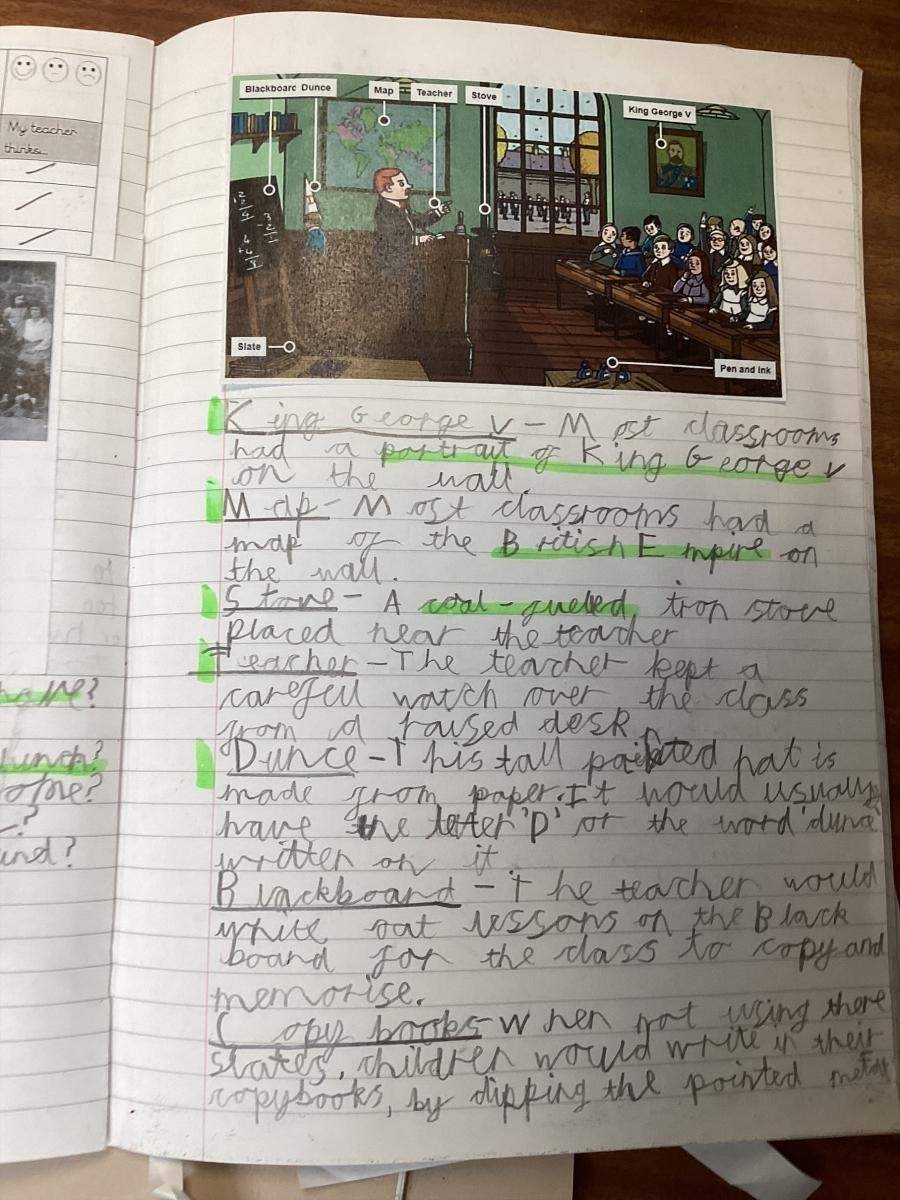 My teacher
thinks...
Blackboard Dunce Map Teacher Stove
King George V
Slate
Pen and ink
King George V - Most classrooms
had a portrait of King George V
on the wall.
Map - Most classrooms had a
map of the British Empire on
the wall.
Stove - A coal-fueled iron stove
placed near the teacher
Teacher - The teacher kept a
careful watch over the class
from a raised desk
Dunce - This tall pointed hat is
made from paper. It would usually
have the letter 'D' or the word 'dunce'
written on it
Blackboard - The teacher would
write out lessons on the Black
board for the class to copy and
memorise.
Copy books - When not using there
slates, children would write in their
copybooks, by dipping the pointed metal
lunch?